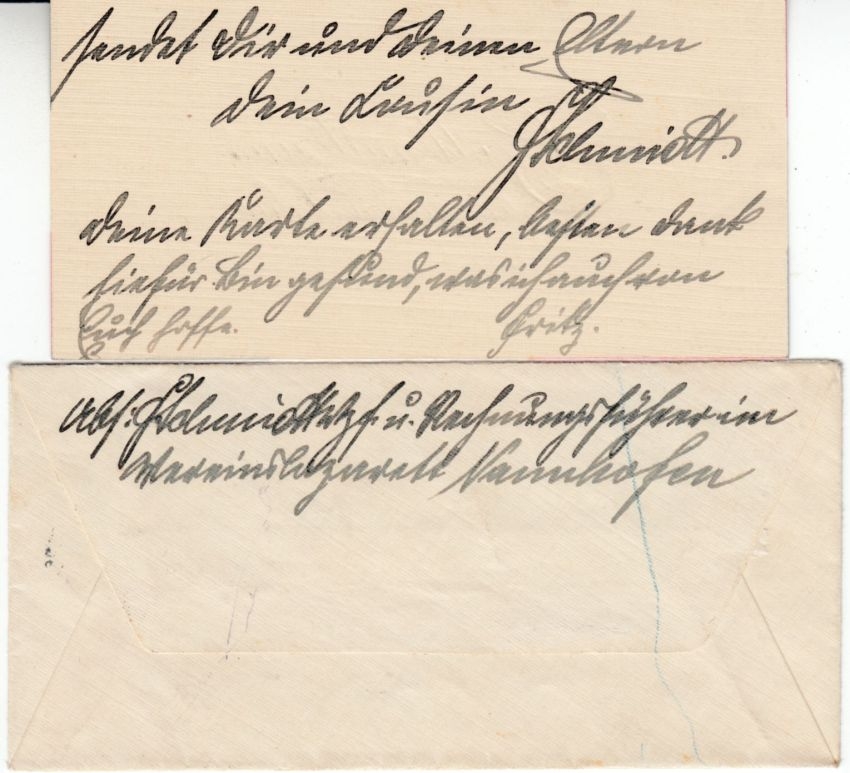 sendet Dir und Deinen Eltern
Dein Cousin
FSchmidt.
Deine Karte erhalten, besten Dank
hiefür. Bin gesund, was ich auch von
Euch hoffe. Fritz.
Abs: FSchmidt Utzf. u. Rechnungsführer im
Vereinslazarett Nannhofen